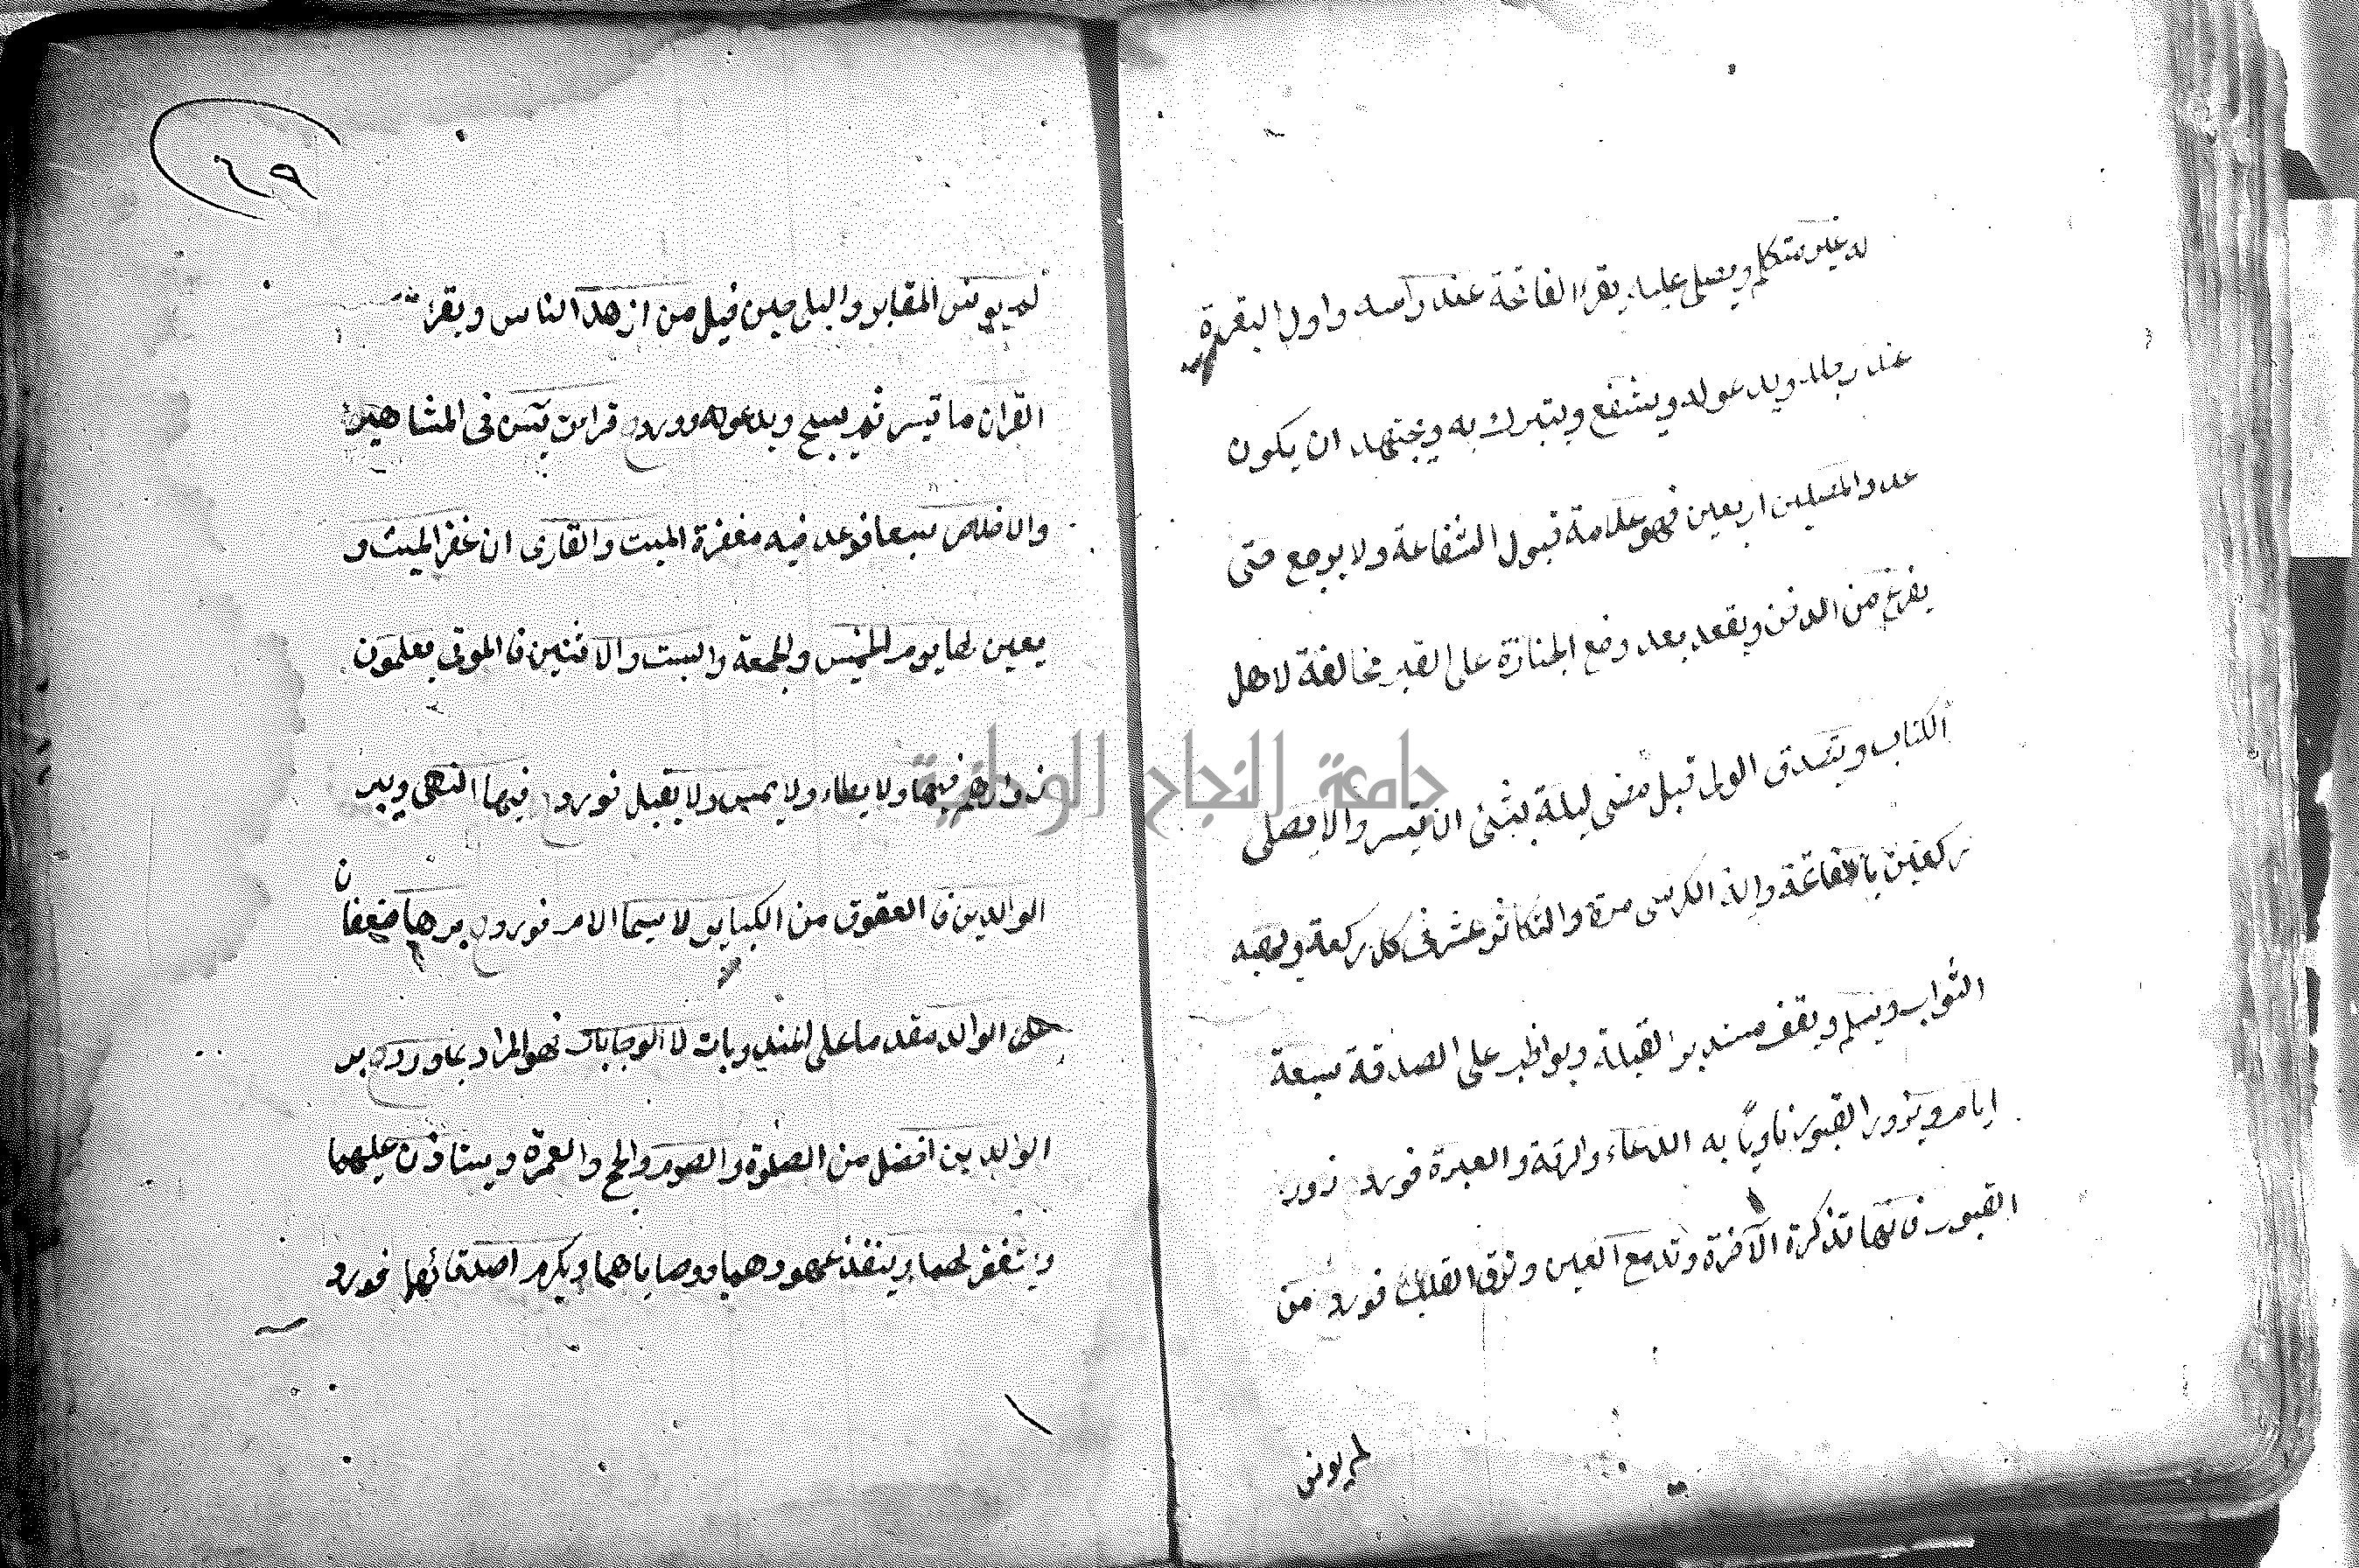 له غير متكلم ويصلى عليه يقرء الفاتحة عند رأسه واول البقرة
عند رجله ويدعو له ويشفع ويتبرك به ويجتهد ان يكون
عدد المصلين اربعين فهو علامة قبول الشفاعة ولا يرجع حتى
يفرغ من الدفن ويقعد بعد وضع الجنازة على القبر مخالفة لاهل
الكتاب ويتصدق الولى قبل مضى ليلة بشئ ان تيسر والا يصلى
ركعتين بالفاتحة واية الكرسى مرة والتكاثر عشر فى كل ركعة ويهبه
الثواب ويسلم ويقف مستدبر القبلة ويواظب على الصدقة سبعة
ايام ويزور القبور ناويًا به الدعاء والرقة والعبرة فورد زورو
القبور فانها تذكرة الآخرة وتدمع العين وترق القلب فورد من
لم يونس
٤٩
لم يونس المقابر والبلى حين قيل من ازهد الناس ويقرء
القران ما تيسر ثم يسبح ويدعو له وورد قراءة يس فى المشاهير
والاخلاص سبعا فوعد فيه مغفرة الميت والقارى ان غفر الميت و
يعين لها يوم الخميس والجمعة والسبت والاثنين فالموتى يعلمون
زوارهم فيها ولا يطاء ولا يمس ولا يقبل فورد فيها النهى ويبر
الوالدين فالعقوق من الكبائر لا سيما الام فورد برها ضعفان
على الوالد مقدما على المندوبات لا الوجابات فهو المراد بما ورد بر
الوالدين افضل من الصلوة والصوم والحج والعمرة ويستاذن عليهما
ويستغفر لهما وينفذ عهودهما ووصاياهما ويكرم اصدقائهما فورد
جامعة النجاح الوطنية